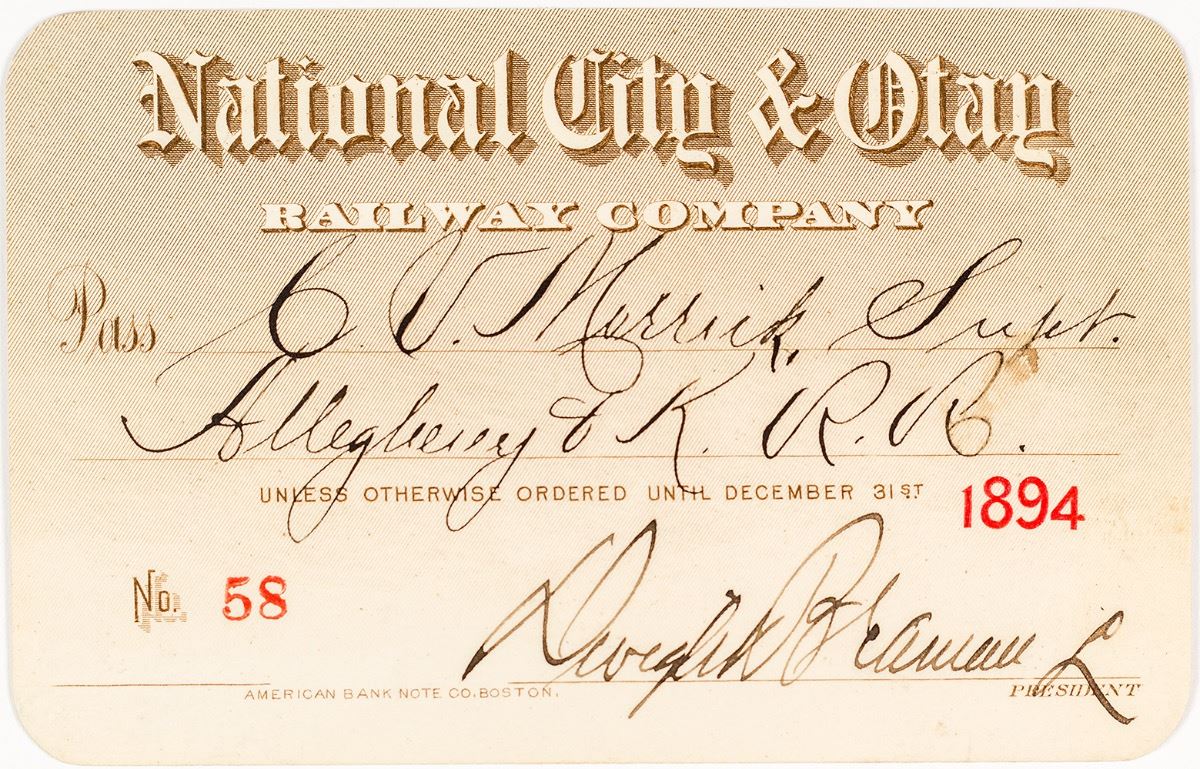 National City & Otay
RAILWAY COMPANY
Pass C. V. Merrick, Supt.
Allegheny & K. R. R.
UNLESS OTHERWISE ORDERED UNTIL DECEMBER 31ST 1894
No. 58
Dwight Braman
AMERICAN BANK NOTE CO. BOSTON.
PRESIDENT